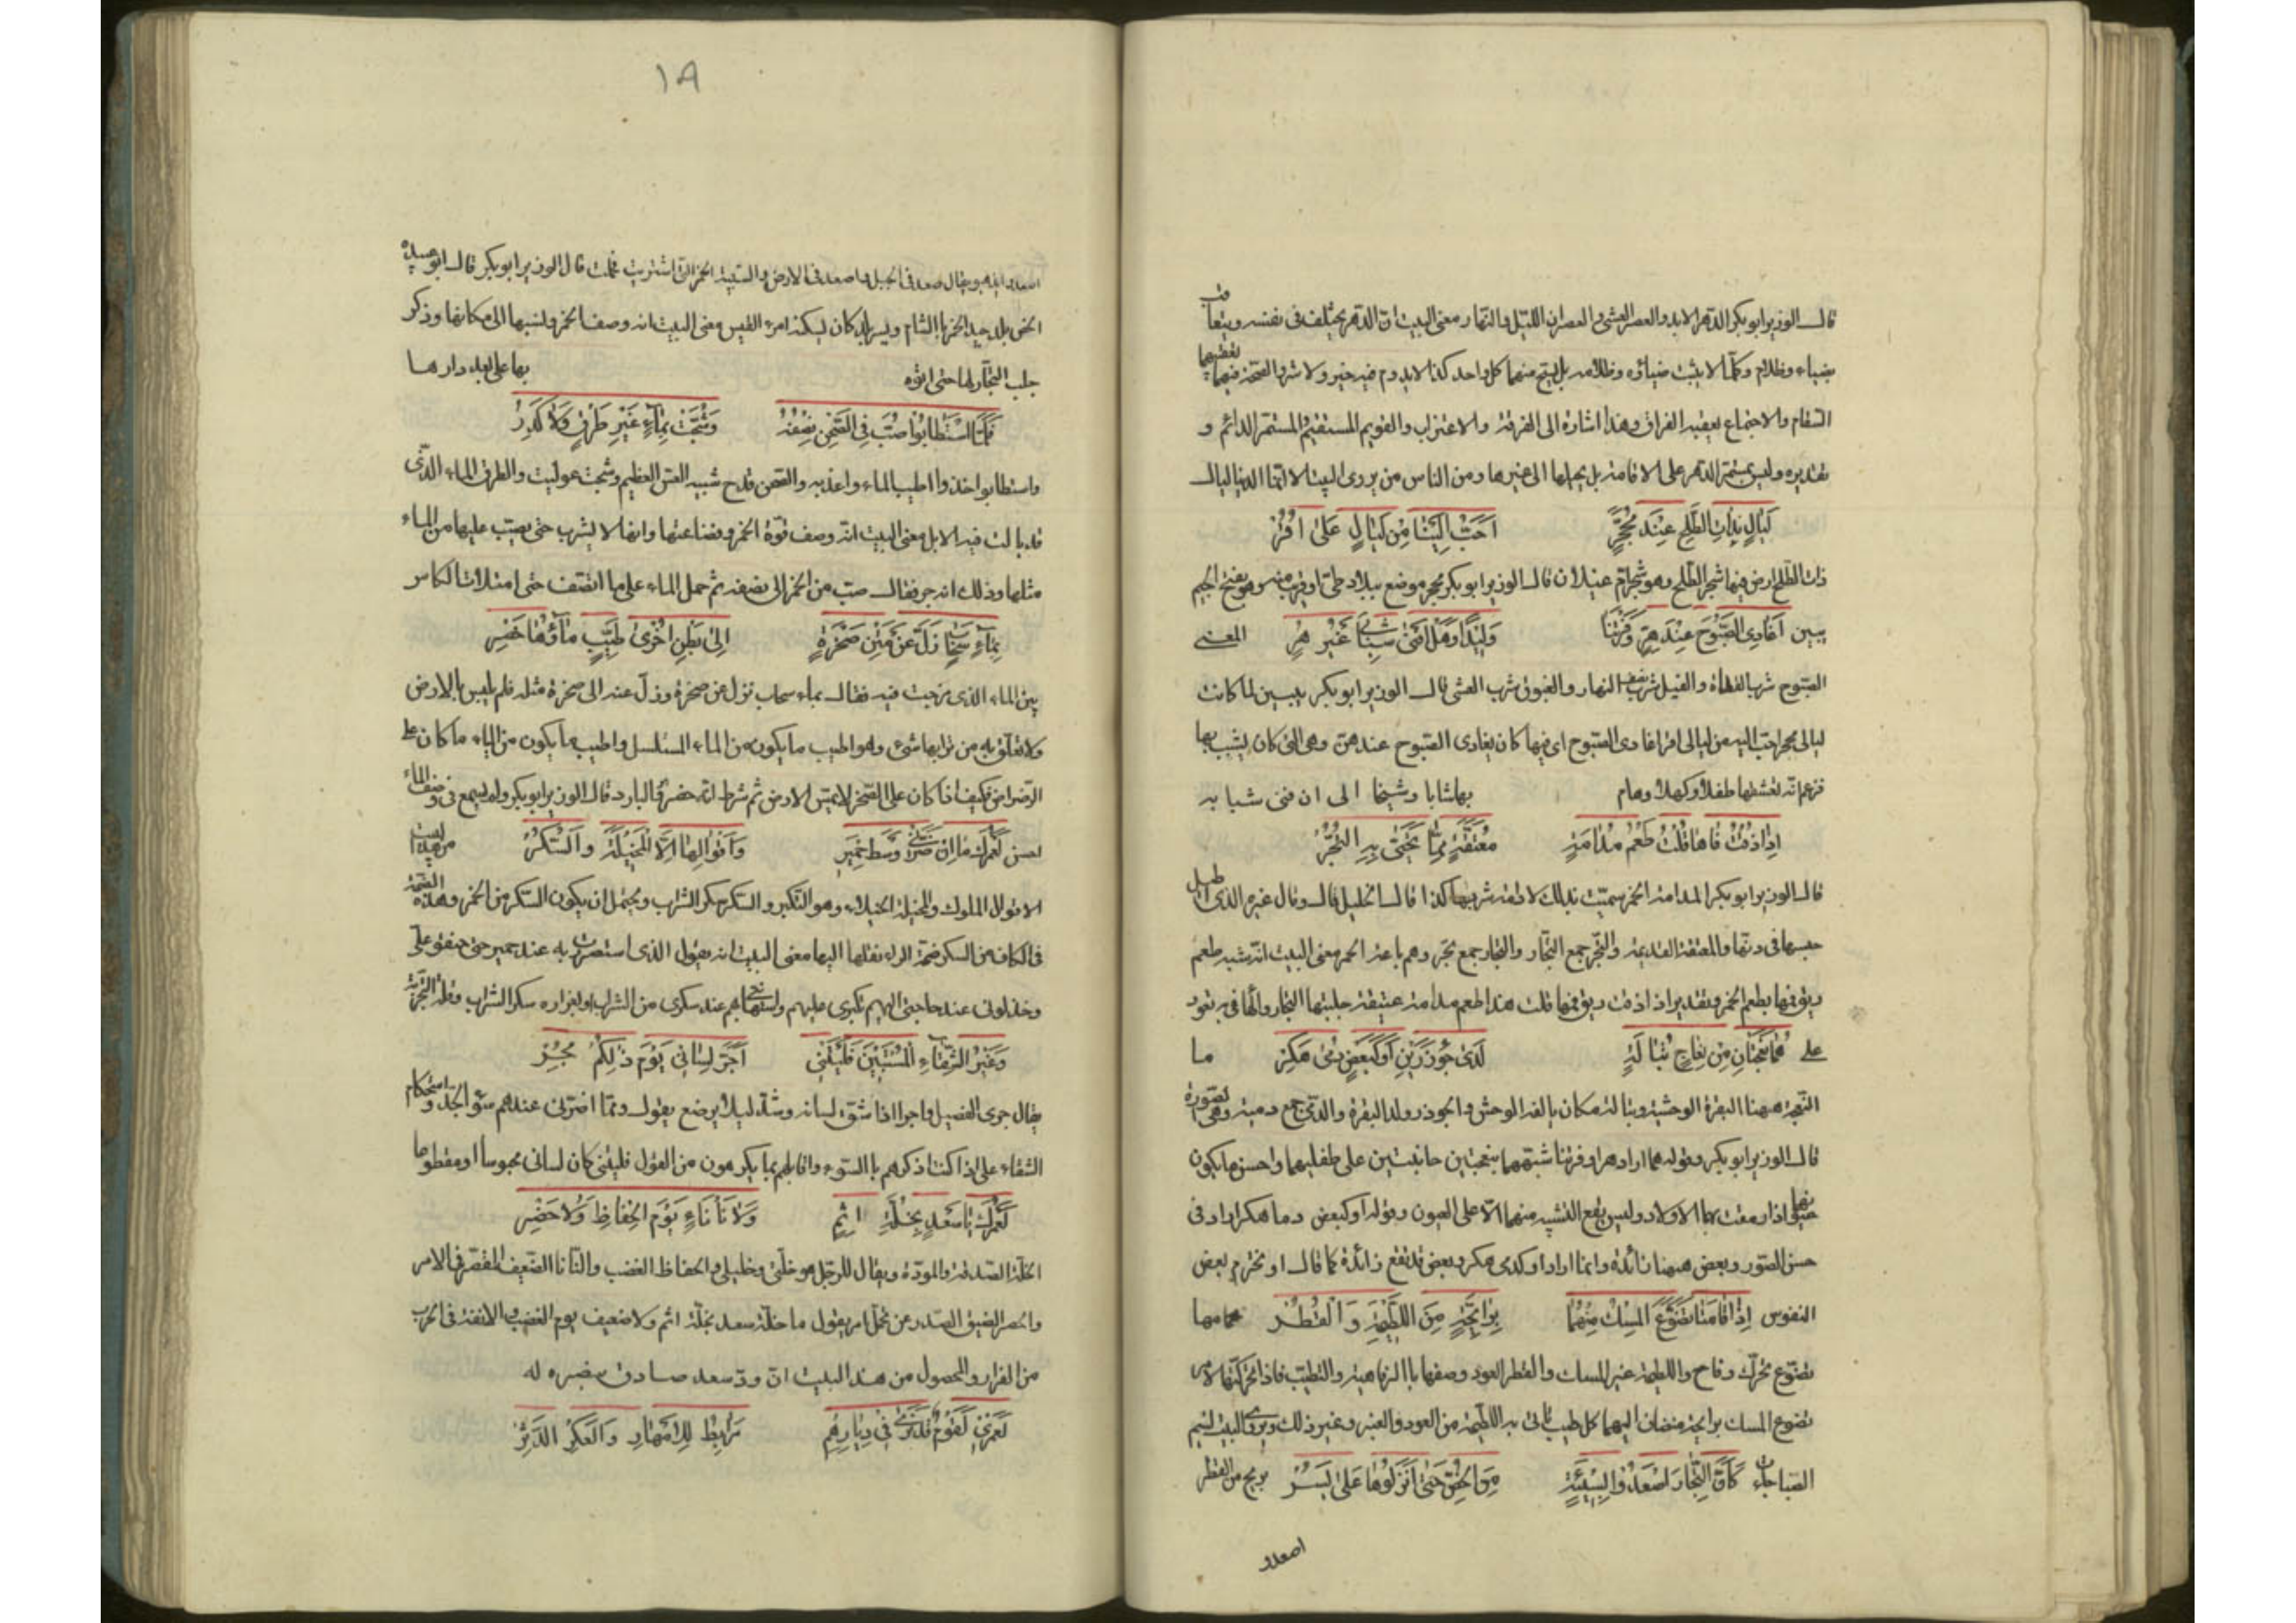 قال الوزير ابو بكر الدهر الابد والعصر العشى والعصران الليل والنهار معنى البيت ان الدهر يختلف فى نفسه ويتعاقب
بضياء وظلام وكما لا يثبت ضياؤه وظلامه بل ينتج منهما كل واحد كذا لا يدوم فيه خير ولا شر والصحة فيهما يعقبهما
السقام والاجتماع يعقبه الفراق وهذا اشارة الى الفرقة والاغتراب والقويم المستقيم المستمر الدائم و
تقديره وليس بمستمر الدهر على الاقامة بل يحيلها الى غيرها ومن الناس من يروى البيت الا انما الدنيا ليال
لَيَالٍ بِذَاتِ الطَّلْحِ عِنْدَ مُحَجَّرٍ اَحَبُّ اِلَيْنَا مِنْ لَيَالٍ عَلَى اُقُرْ
ذات الطلح ارض فيها شجر الطلح وهو شجر ام غيلان قال الوزير ابو بكر محجر موضع ببلاد طى او قريب منه وهو بفتح الجيم
يبين اُغَادِى الصَّبُوحَ عِنْدَ هِرٍّ وَفَرْتَنَا وَلِيْدًا وَهَلْ اَفْنَى شَبَابِى غَيْرُ هِرْ المعنى
الصبوح شرب الغداة والقيل شرب نصف النهار والغبوق شرب العشى قال الوزير ابو بكر يبين لما كانت
ليالى محجر احب اليه من ليالى اقر اغادى الصبوح اى فيها كان يغادى الصبوح عندهن وهى التى كان يشبب بها
فزعم انه تعشقها طفلا وكهلا وهام بها شابا وشيخا الى ان فنى شبابه
اِذَا ذُقْتُ فَاهَا قُلْتُ طَعْمُ مُدَامَةٍ مُعَتَّقَةٍ مِمَّا تَجِىْءُ بِهِ التُّجُرْ
قال الوزير ابو بكر المدامة الخمر سميت بذلك لادامة شربها كذا قال الخليل قال وقال غيره الذى اطيل
حبسها فى دنها والمعتقة القديمة والتجر جمع التجار والتجار جمع تجر وهم باعة الخمر معنى البيت انه شبه طعم
ريق فيها بطعم الخمر وتقديره اذا ذقت ريق فمها قلت هذا طعم مدامة عتيقة جلبتها التجار والها فى به تعود
على هُمَا نَعْجَتَانِ مِنْ نِعَاجِ تَبَالَةٍ لَدَى جُؤْذَرَيْنِ اَوْ كَبَعْضِ دُمَى هَكِرْ ما
النعجة ههنا البقرة الوحشية وتبالة مكان يالفه الوحش والجوذر ولد البقرة والدمى جمع دمية وهى الصورة
قال الوزير ابو بكر وقوله هما اراد هرا وفرتنا شبههما بنعجتين حانيتين على طفليهما واحسن ما يكون
اذا رمقت بها الاولاد وليس يقع التشبيه منهما الا على العيون وقوله او كبعض دما هكر اراد فى
حسن الصور وبعض ههنا زائدة وانما اراد او كدمى هكر وبعض قد تقع زائدة كما قال او يخترم بعض
النفوس اِذَا قَامَتَا تَضَوَّعَ الْمِسْكُ مِنْهُمَا بِرَائِحَةٍ مِنَ اللَّطِيْمَةِ وَالْقُطُرْ حمامها
تضوع تحرك وفاح واللطيمة عير المسك والقطر العود وصفها باالرفاهية والتطيب فاذا تحركتا لامر
تضوع المسك برائحة منضاف اليهما كل طيب ياتى به اللطيمة من العود والعنبر وغير ذلك ويروى البيت نسيم
الصبا جاءت كَاَنَّ التُّجَّارَ اَصْعَدُوا بِسَبِيْئَةٍ مِنَ الْخُصِّ حَتَّى اَنْزَلُوْهَا عَلَى يُسُرْ بريح من القطر
اصعدوا
١٩
اصعدوا ويقال صعد فى الجبل واصعد فى الارض والسبيئة الخمر التى اشتريت قال الوزير ابو بكر قال ابو عبيدة
الخص بلد جيد الخمر باالشام ويسر بلد كان يسكنه امرء القيس معنى البيت انه وصف الخمر ونسبها الى مكانها وذكر
جلب التجار لها حتى اتوه بها على بعد دارها
فَلَمَّا اسْتَطَابُوا صُبَّ فِى الصَّحْنِ نِصْفُهُ وَشُجَّتْ بِمَاءٍ غَيْرِ طَرْقٍ وَلَا كَدِرْ
واستطابوا اخذوا اطيب الماء واعذبه والصحن قدح شبيه العس العظيم وشجت عوليت والطرق الماء الذى
قد بالت فيه الابل معنى البيت انه وصف قوة الخمر وانها لا يشرب حتى يصب عليها من الماء
مثلها وذلك انه جر فقال صب من الخمر الى نصفه ثم حمل الماء على ما انتصف حتى امتلات الكاس
بِمَاءِ سَحَابٍ زَلَّ عَنْ مَتْنِ صَخْرَةٍ اِلَى بَطْنِ اُخْرَى طَيِّبٍ مَاؤُهَا خَصِرْ
بين الماء الذى مزجت فيه فقال بماء سحاب نزل عن صخرة وزل عنه الى صخرة مثله فلم يلبس باالارض
ولا تعلق به من ترابها شىء وهو اطيب ما يكون من الماء السلسل واطيب ما يكون من الماء ما كان على
الرضراض فكيف اذا كان على الصخر لا يمس الارض ثم شرط انه خصر والبارد قال الوزير ابو بكر ولم يسمع فى وصف الماء
احسن لَعَمْرُكَ مَا اِنْ ضَرَّنِى وَسْطَ حِمْيَرٍ وَاَقْوَالِهَا اِلَّا الْمَخِيْلَةُ وَالسُّكُرْ من هذا البيت
الاقوال الملوك والمخيلة الخيلاء وهو التكبر والسكر سكر الشراب ويحتمل ان يكون السكر من الخمر وهذه الضمة
فى الكاف من السكر ضمة الراء نقلها اليها معنى البيت انه يقول الذى استضررت به عند حمير حتى حنقوا على
وخذلونى عند حاجتى اليهم تكبرى عليهم بهم عند سكرى من الشراب
وَغَيْرُ الشَّقَاءِ الْمُسْتَبِيْنِ فَلَيْتَنِى اَجَرَّ لِسَانِى يَوْمَ ذٰلِكُمُ مُجِرْ
يقال جرى الفصيل واجر اذا شق لسانه وشد ليلا يرضع يقول ومما اضرنى عندهم سوء الجد واستحكام
الشقاء على اذا كنت اذكرهم باالسوء واقابلهم بما يكرهون من القول فليتنى كان لسانى محبوسا او مقطوعا
لَعَمْرُكَ مَا سَعْدٌ بِخُلَّةِ اٰثِمٍ وَلَا نَأْنَاءٍ يَوْمَ الْحِفَاظِ وَلَا حَصِرْ
الخلة الصداقة والمودة ويقال للرجل هو خلتى وخليلى والحفاظ الغضب والنأنأ الضعيف المقصر فى الامر
والحصر الضيق الصدر عن تحمل امر يقول ما خلة سعد بخلة اثم ولا ضعيف يوم الغضب والانفة فى الحرب
من الفرار والمحصول من هذا البيت ان ود سعد صادق له
لَعَمْرِى لَقَوْمٌ قَدْ نَرَى فِى دِيَارِهِمْ مَرَابِطَ لِلْاَمْهَارِ وَالْعَكَرِ الدَّثِرْ